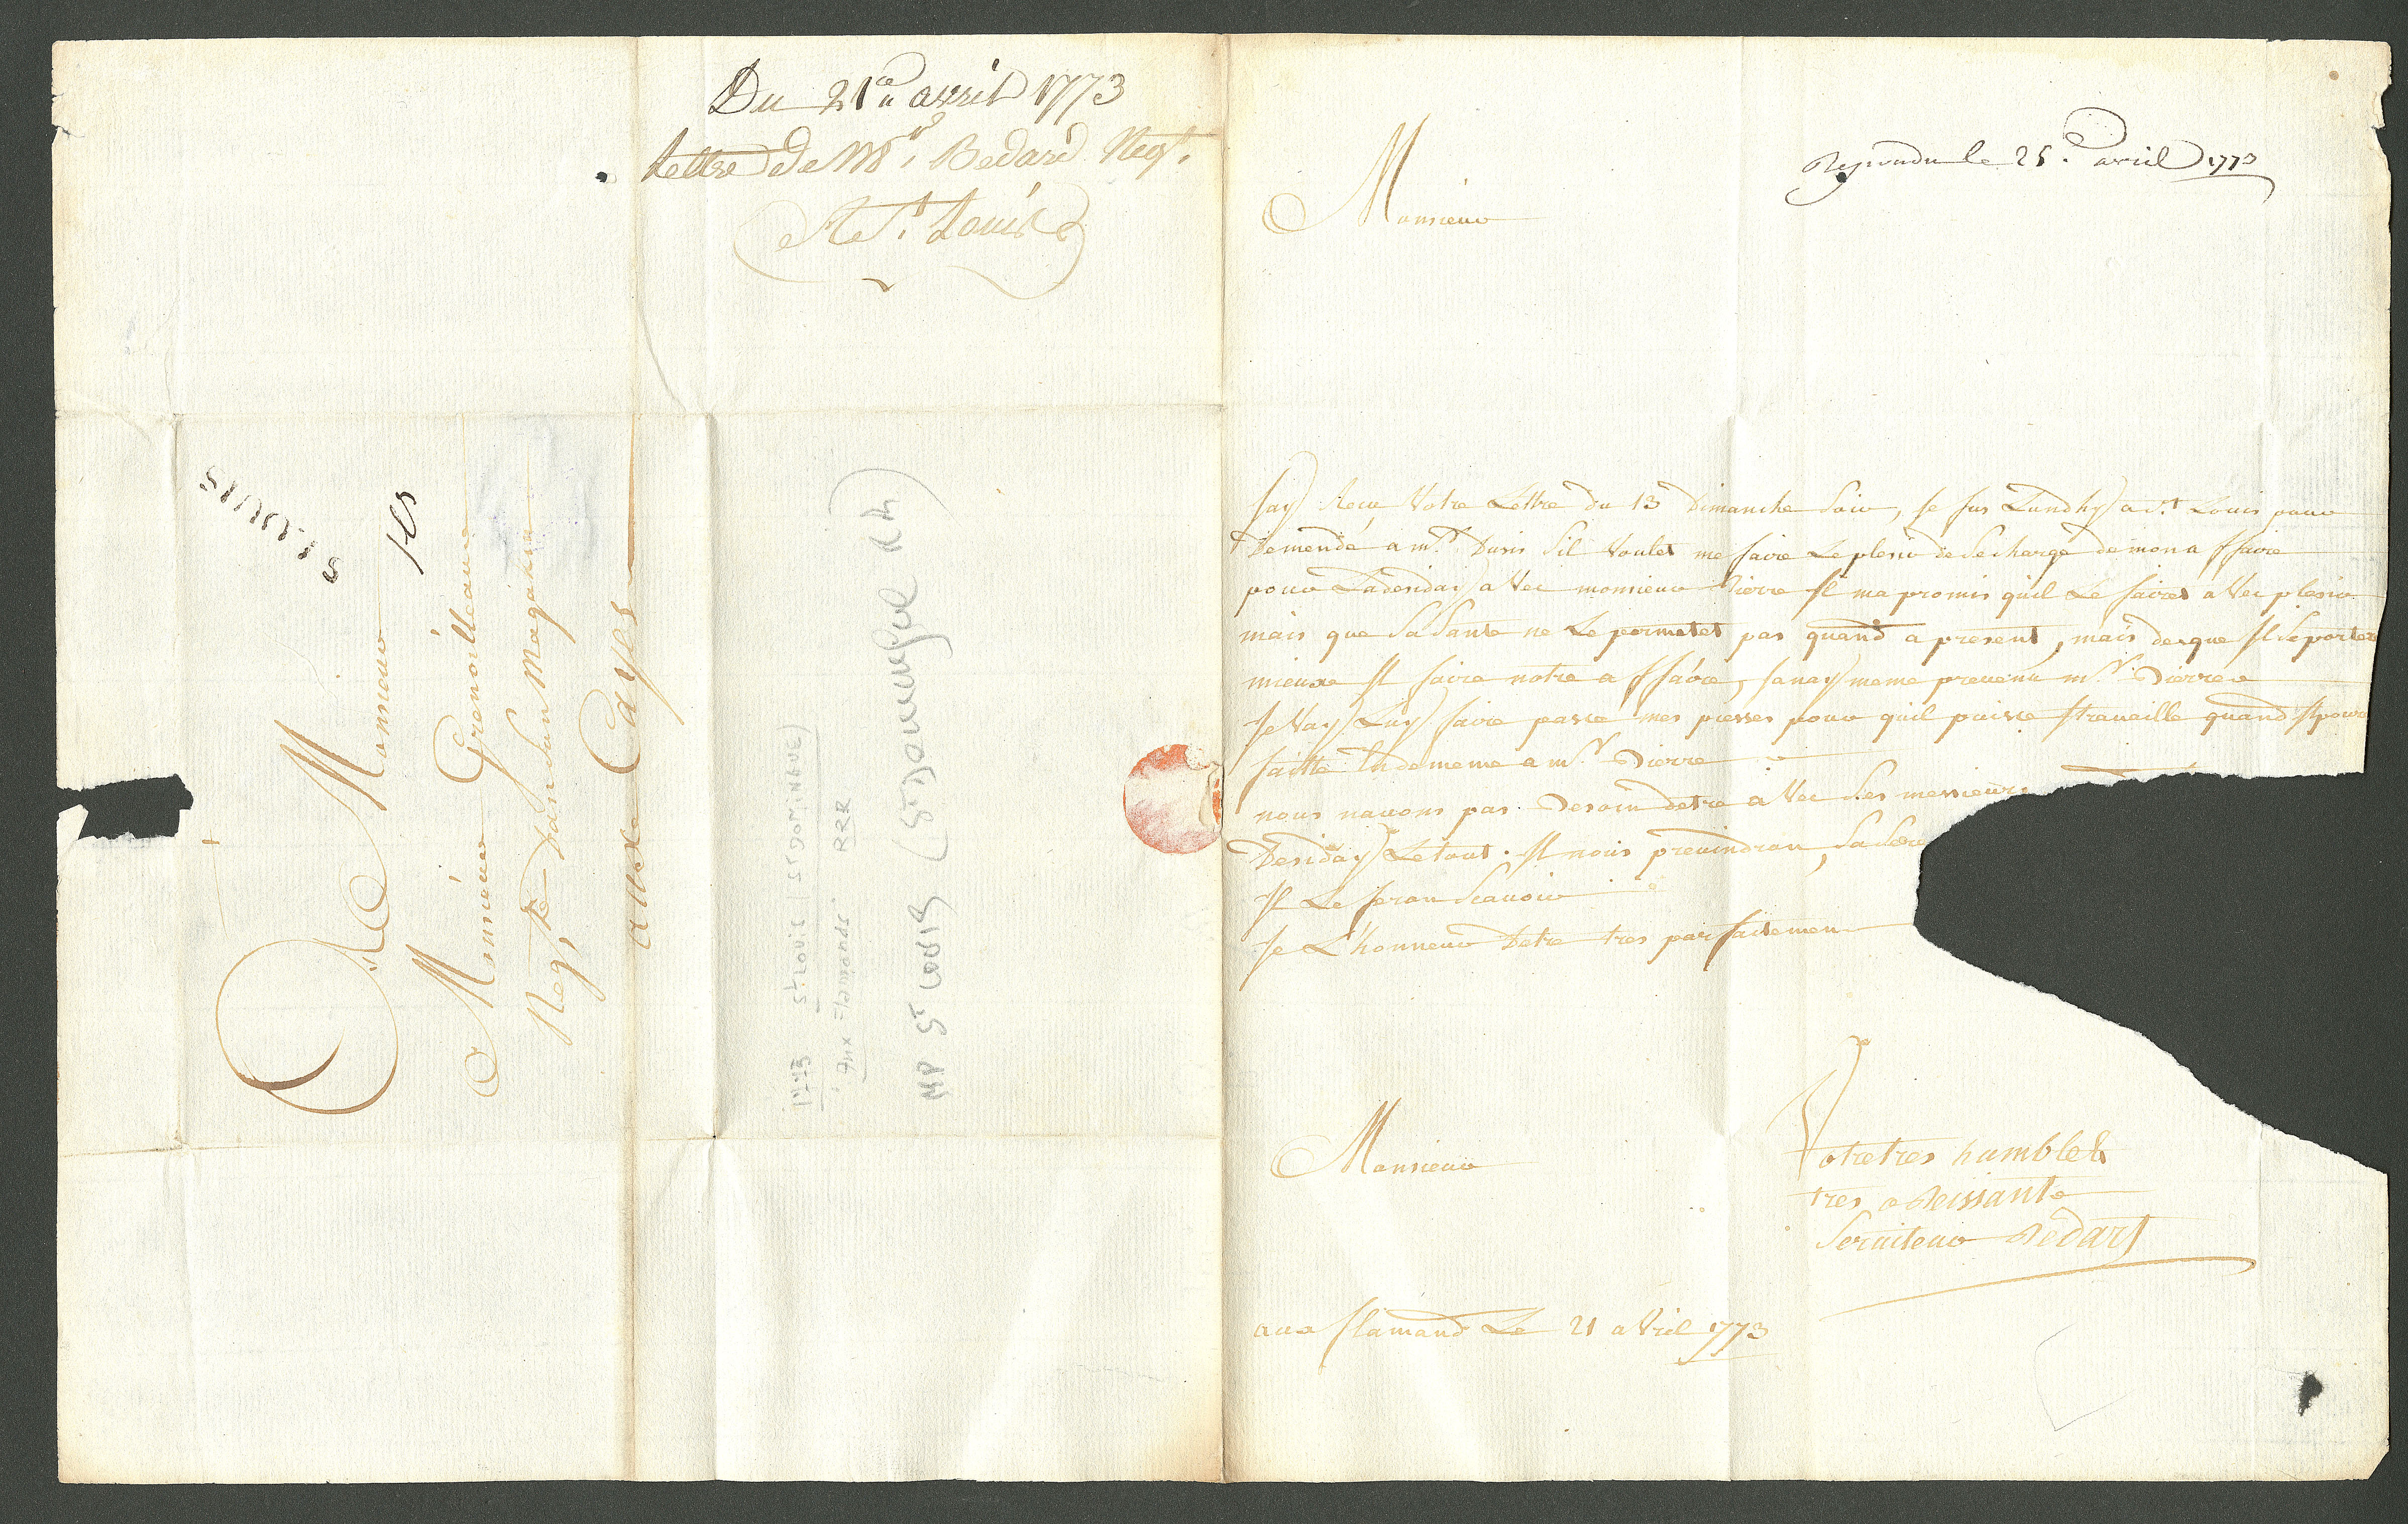 Du 21e avril 1773
Lettre de Mr. Bedard Negt.
St. Louis
St LOUIS
A Monsieur
Monsieur Grenoilleau
Negt. Dan Son Magazin
aux Cayes
1773 St. LOUIS (St DOMINGUE)
aux Flamands. RRR
MP St LOUIS (St Domingue
Repondu le 25. avril 1773
Monsieur
Jay Recu Votre Lettre du 13 Dimanche Soir, Je fus Lundhy a St Louis pour
Demendé a mr. Duris Sil Voulet me faire Le plesir de Se charge de mon a ffaire
pour La desidai a Vec monsieur Pierre Il ma promis quil Le faires a Vec plesir
mais que Sa Sante ne Le permetet pas quand a present, mais des que Il Se porter
mieux Il faira notre a ffaire, Janay meme prevenu mr. Pierre
Je Vay Luy faire passe mes piesses pour quil puisse travaille quand Il poura
faitte de meme a mr. Pierre
nous navons pas Besoin detre a Vec Ses messieurs
Desiday Le tout. Il nous previndron,
Il Le feron Scavoir
Je L'honneur Detre tres parfaitemen
Monsieur
Votre tres humble &
tres obeissante
Serviteur Bédart
aux flamand Le 21 aVril 1773